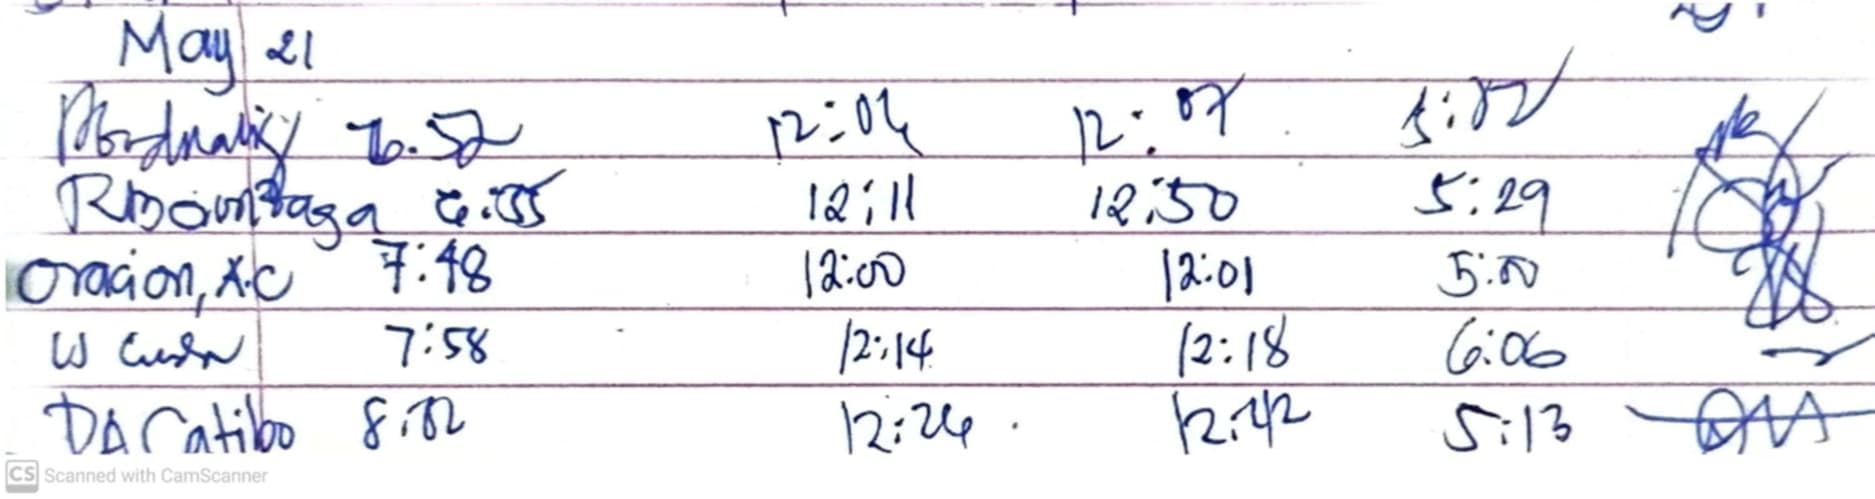 May 21
6:52 12:04 12:07 5:02
6:55 12:11 12:50 5:29
Oracion, A.C 7:48 12:00 12:01 5:00
W 7:58 12:14 12:18 6:06
DA Catibo 8:02 12:24 12:42 5:13
CS Scanned with CamScanner